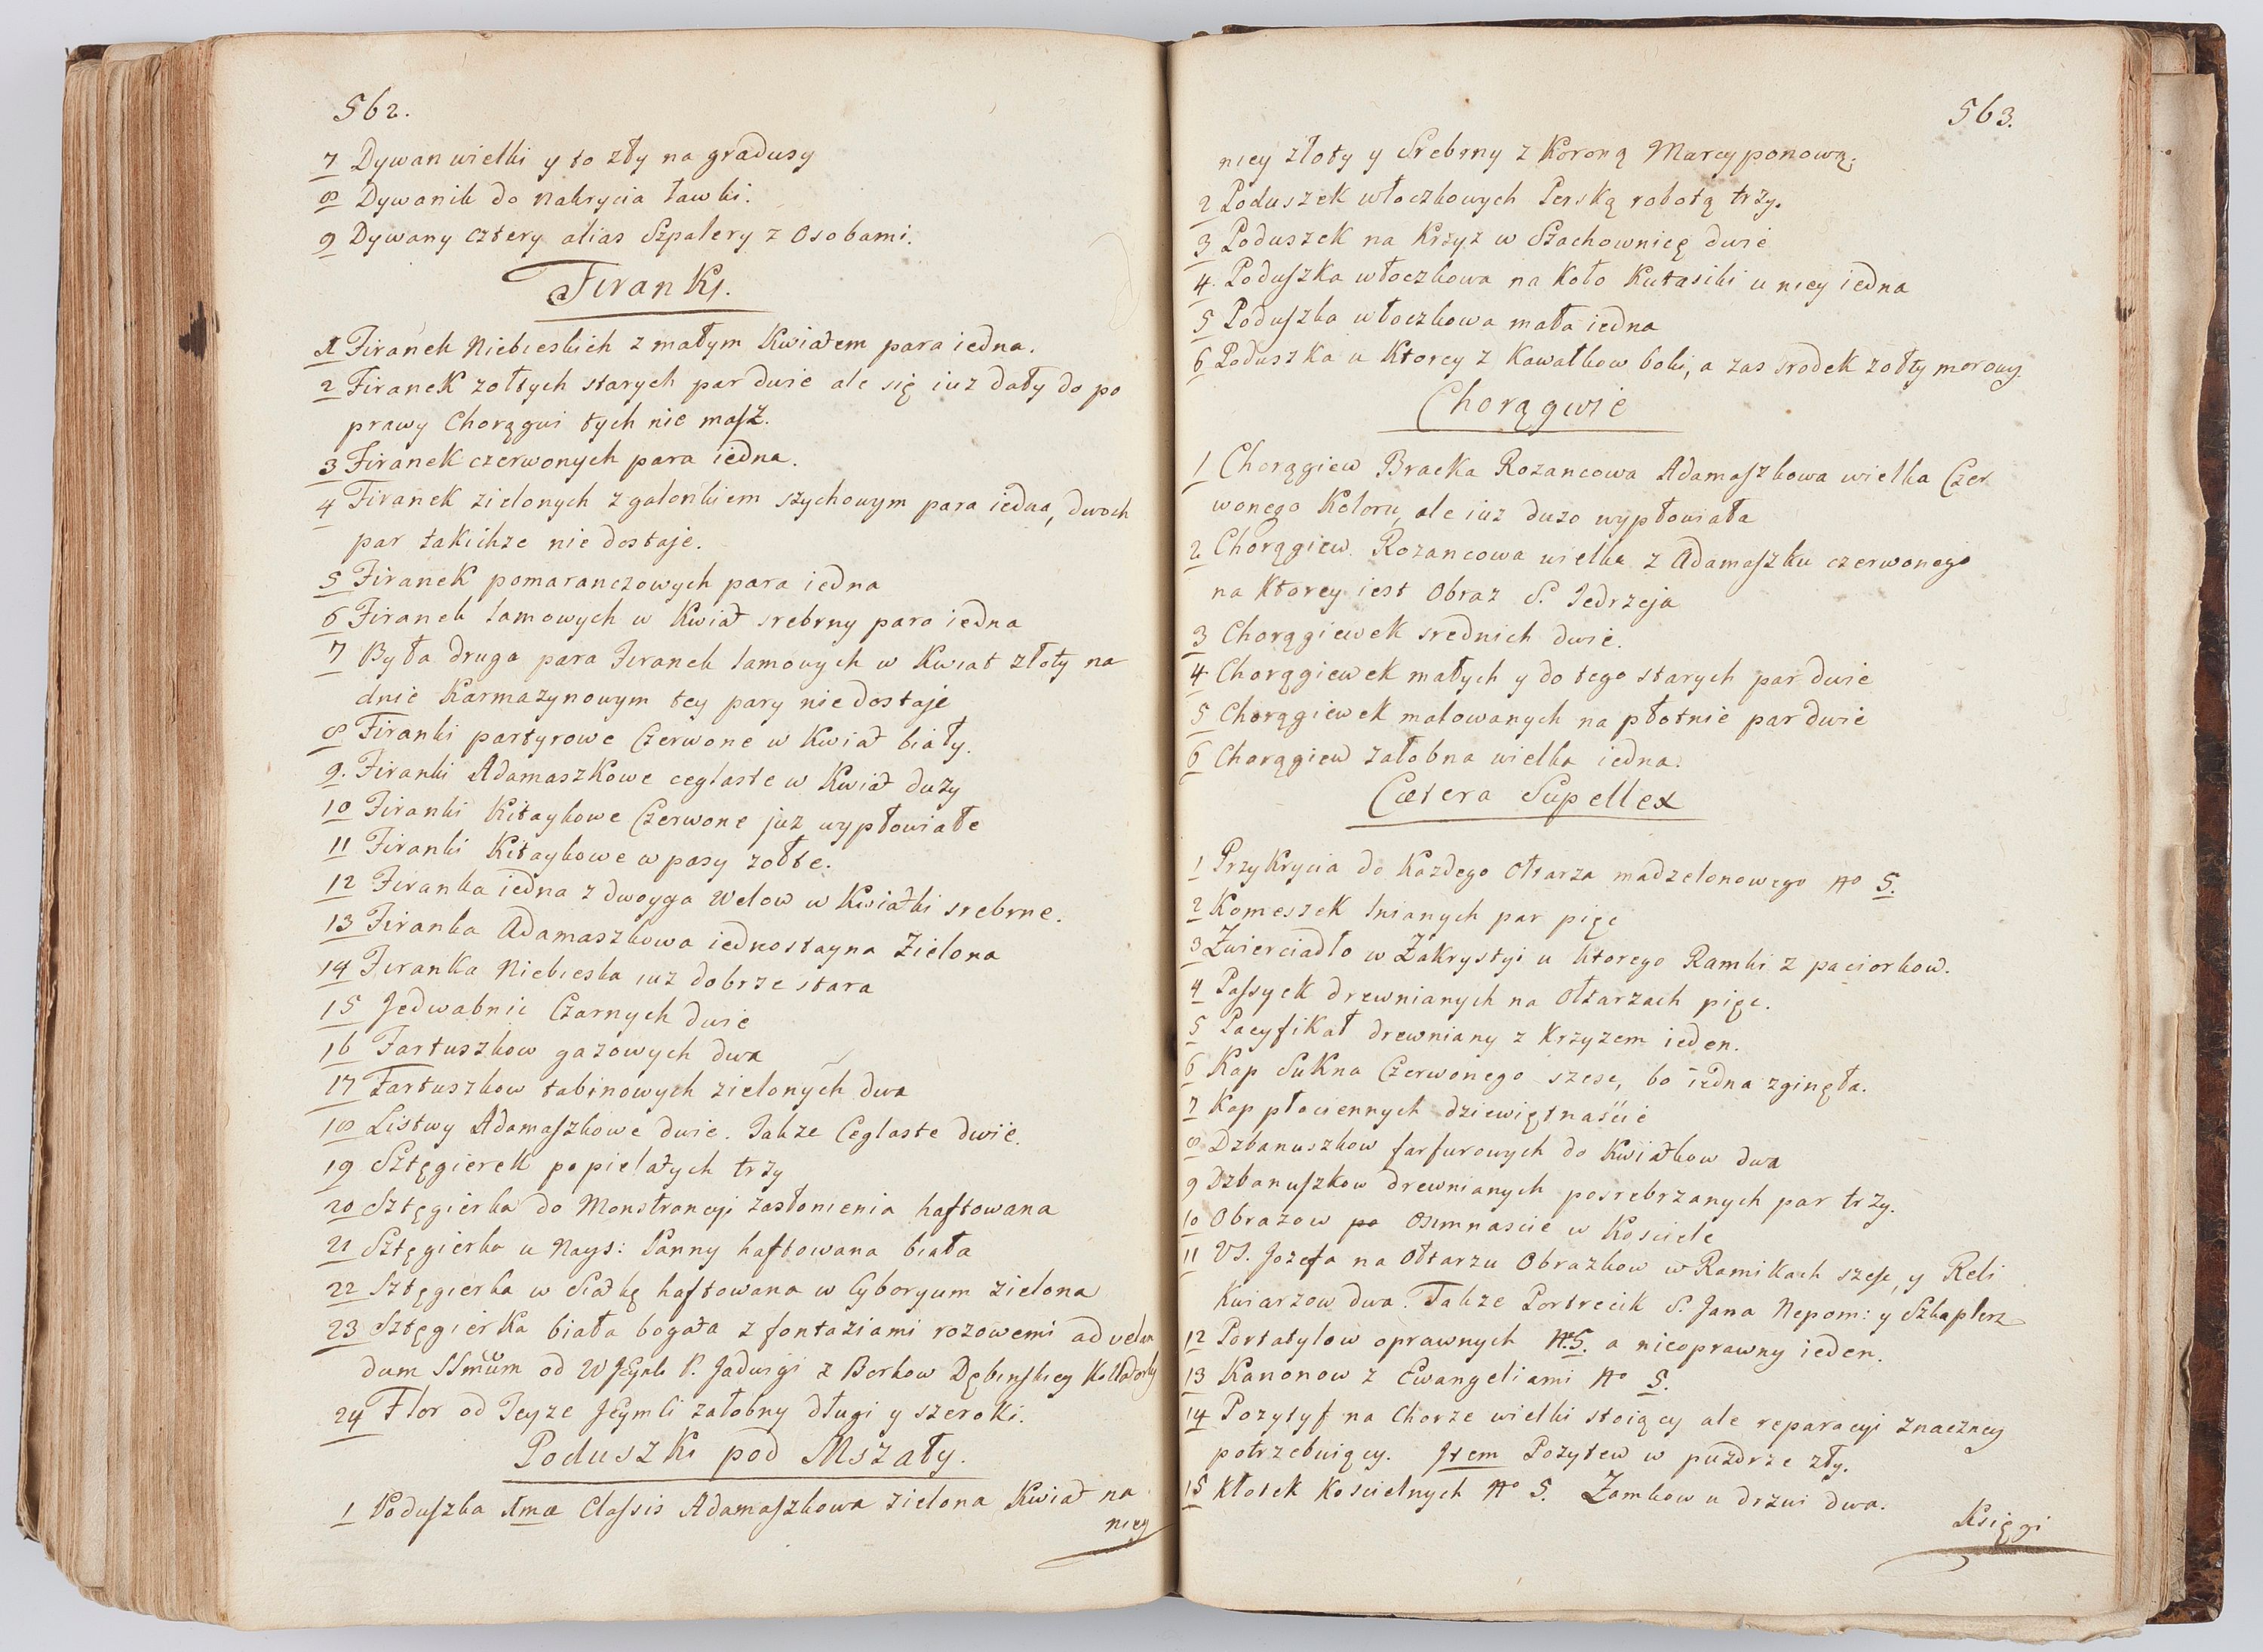 562.
7 Dywan wielki y to zły na gradusy
8 Dywanik do nakrycia ławki.
9 Dywany cztery alias Szpalery z Osobami.
Firanki.
1 Firanek Niebieskich z małym Kwiatem para iedna.
2 Firanek zołtych starych par dwie ale się iuz dały do po
prawy Chorągwi tych nie masz.
3 Firanek czerwonych para iedna.
4 Firanek zielonych z galonkiem szychowym para iedna, dwoch
par takichze nie dostaje.
5 Firanek pomaranczowych para iedna
6 Firanek lamowych w Kwiat srebrny para iedna
7 Była druga para Firanek lamowych w Kwiat złoty na
dnie Karmazynowym tey pary nie dostaje
8 Firanki partyrowe Czerwone w Kwiat biały.
9. Firanki Adamaszkowe ceglaste w Kwiat duzy
10 Firanki Kitaykowe Czerwone juz wypłowiałe
11 Firanki Kitaykowe w pasy zołte.
12 Firanka iedna z dwoyga Welow w Kwiatki srebrne.
13 Firanka Adamaszkowa iednostayna Zielona
14 Firanka Niebieska iuz dobrze stara
15 Jedwabnic Czarnych dwie
16 Fartuszkow gazowych dwa
17 Fartuszkow tabinowych zielonych dwa
18 Listwy Adamaszkowe dwie. Takze Ceglaste dwie.
19 Sztęgierek popielatych trzy
20 Sztęgierka do Monstrancyi zasłonienia haftowana
21 Sztęgierka u Nays: Panny haftowana biała
22 Sztęgierka w Siatkę haftowana w Cyboryum zielona
23 Sztęgierka biała bogata z fontaziami rozowemi ad velan
dum SSmum od P. Jadwigi z Borkow Dębinskiey
24 Flor od Teyze JEymli załobny długi y szeroki.
Poduszki pod Mszały.
1 Poduszka 1mæ Classis Adamaszkowa zielona Kwiat na
niey
563.
niey złoty y Srebrny z Koroną Marcyponową.
2 Poduszek włoczkowych Perską robotą trzy.
3 Poduszek na Krzyz w Szachownicę dwie
4. Poduszka włoczkowa na Koło Kutasiki u niey iedna
5 Poduszka włoczkowa mała iedna
6 Poduszka u Ktorey z Kawałkow boki, a zas srodek zołty morowy.
Chorągwie
1 Chorągiew Bracka Rozancowa Adamaszkowa wielka Czer
wonego Koloru, ale iuz duzo wypłowiała
2 Chorągiew Rozancowa wielka z Adamaszku czerwonego
na Ktorey iest Obraz S. Jedrzeja
3 Chorągiewek srednich dwie.
4 Chorągiewek małych y do tego starych par dwie
5 Chorągiewek malowanych na płotnie par dwie
6 Chorągiew załobna wielka iedna.
Cætera Supellex
1 Przykrycia do Kazdego Ołtarza madzelonowego No 5.
2 Komeszek lnianych par pięc
3 Zwierciadło w Zakrystyi u Ktorego Ramki z paciorkow.
4 Passyek drewnianych na Ołtarzach pięc.
5 Pacyfikał drewniany z Krzyzem ieden.
6 Kap Sukna Czerwonego szesc, bo iedna zginęła.
7 Kap płociennych dziewiętnaście
8 Dzbanuszkow farfurowych do Kwiatkow dwa
9 Dzbanuszkow drewnianych posrebrzanych par trzy.
10 Obrazow po Osmnascie w Kosciele
11 U S. Jozefa na Ołtarzu Obrazkow w Ramikach szesc, y Reli
Kwiarzow dwa. Takze Portrecik S. Jana Nepom: y Szkaplerz
12 Portatylow oprawnych No. 5. a nieoprawny ieden.
13 Kanonow z Ewangeliami No 5.
14 Pozytyf na Chorze wielki stoiący ale reparacyi znaczney
potrzebuiący. Item Pozytew w puzdrze zły.
15 Kłotek Koscielnych No 5. Zamkow u drzwi dwa.
Księgi